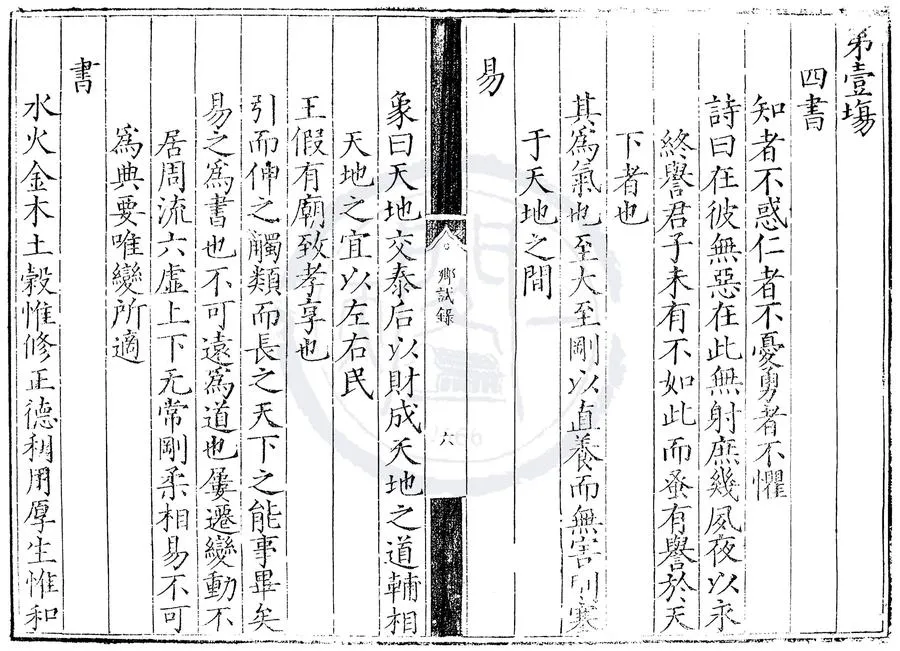 弟壹塲
四書
知者不惑仁者不憂勇者不懼
詩曰在彼無惡在此無射庶幾夙夜以永
終譽君子未有不如此而蚤有譽於天
下者也
其為氣也至大至剛以直養而無害則塞
于天地之間
易
鄉試錄
六
象曰天地交泰后以財成天地之道輔相
天地之宜以左右民
王假有廟致孝享也
引而伸之觸類而長之天下之能事畢矣
易之為書也不可遠為道也屢遷變動不
居周流六虛上下无常剛柔相易不可
為典要唯變所適
書
水火金木土穀惟修正德利用厚生惟和